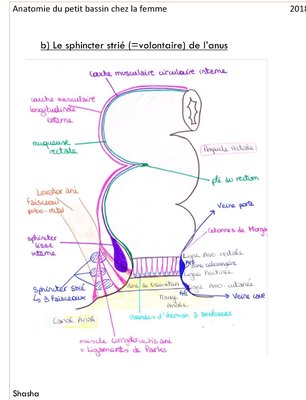 Anatomie du petit bassin chez la femme
2018
b) Le sphincter strié (=volontaire) de l'anus
couche musculaire circulaire interne
couche musculaire
longitudinale
externe
muqueuse
rectale
Ampoule rectale
pli du rectum
Levator ani
faisceau
pubo-rectal
Veine porte
colonnes de Morga
sphincter
lisse
interne
Ligne Ano rectale
Zone
Ligne Pectinée
Sphincter strié
3 faisceaux
Zone de transition
Ligne Ano cutanée
Marge
Anale
Veine cave
Canal Anal
Glandes d'Herman &
muscle
= Ligaments de Parks
Shasha